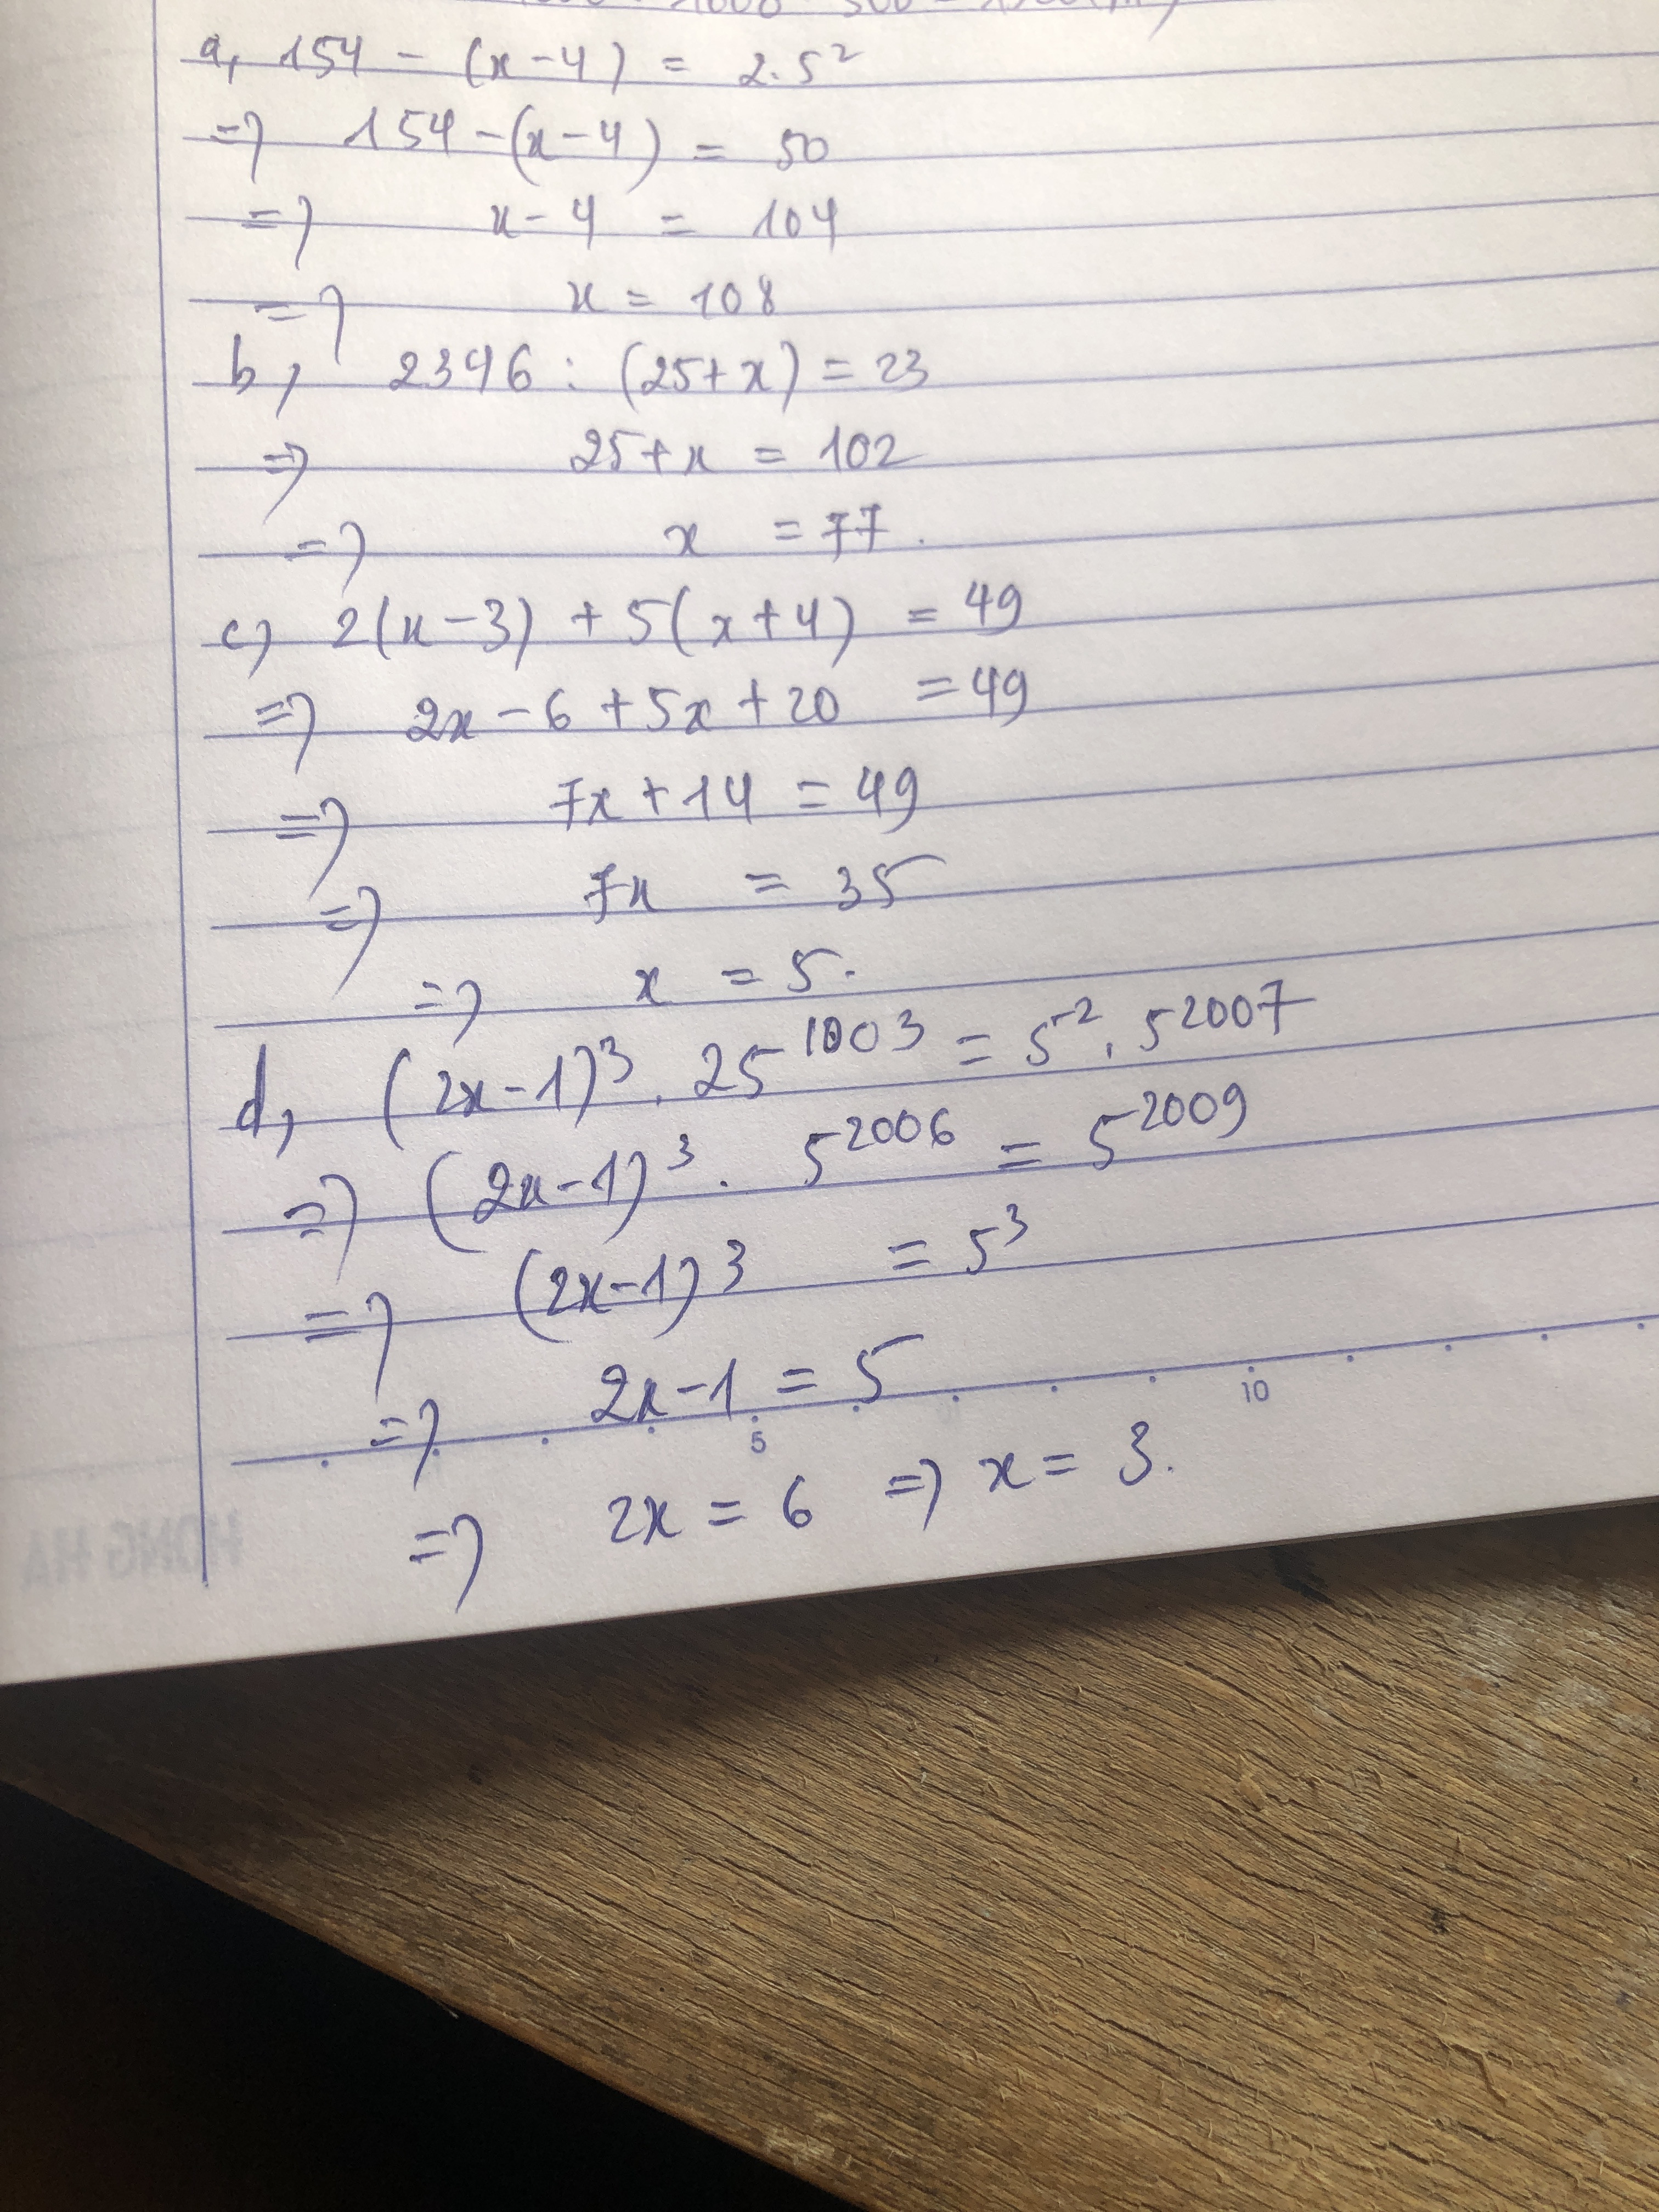 a, 154 - (x-4) = 2.5²
=> 154 - (x-4) = 50
=> x-4 = 104
=> x = 108
b, 2346 : (25+x) = 23
=> 25+x = 102
=> x = 77.
c, 2(x-3) + 5(x+4) = 49
=> 2x - 6 + 5x + 20 = 49
=> 7x + 14 = 49
=> 7x = 35
=> x = 5.
d, (2x-1)³ . 25¹⁰⁰³ = 5² . 5²⁰⁰⁷
=> (2x-1)³ . 5²⁰⁰⁶ = 5²⁰⁰⁹
=> (2x-1)³ = 5³
=> 2x-1 = 5
5 10
=> 2x = 6 => x = 3.
HONG HA